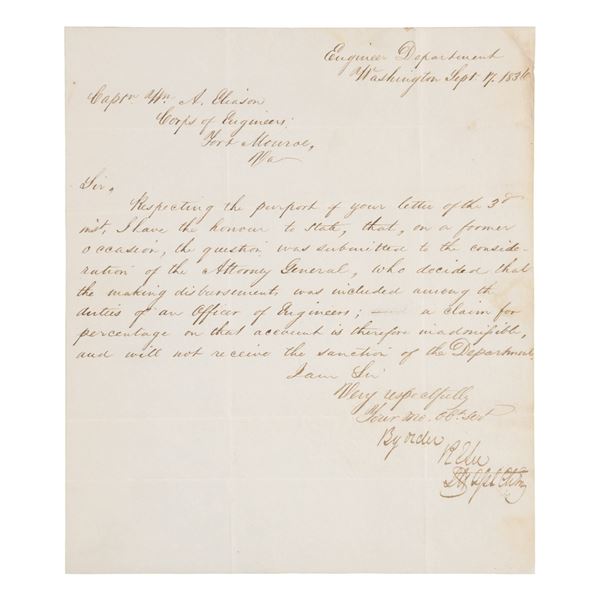 Engineer Department
Washington Sept 17. 1836
Captn Wm A. Eliason
Corps of Engineers;
Fort Monroe,
Va
Sir,
Respecting the purport of your letter of the 3d
inst, I have the honour to state, that, on a former
occasion, the question was submitted to the conside-
ration of the Attorney General, who decided that
the making disbursements was included among the
duties of an Officer of Engineers; — a claim for
percentage on that account is therefore inadmissible,
and will not receive the sanction of the Department
I am Sir
Very respectfully
Your mo. Obt Sert
By order
R E Lee